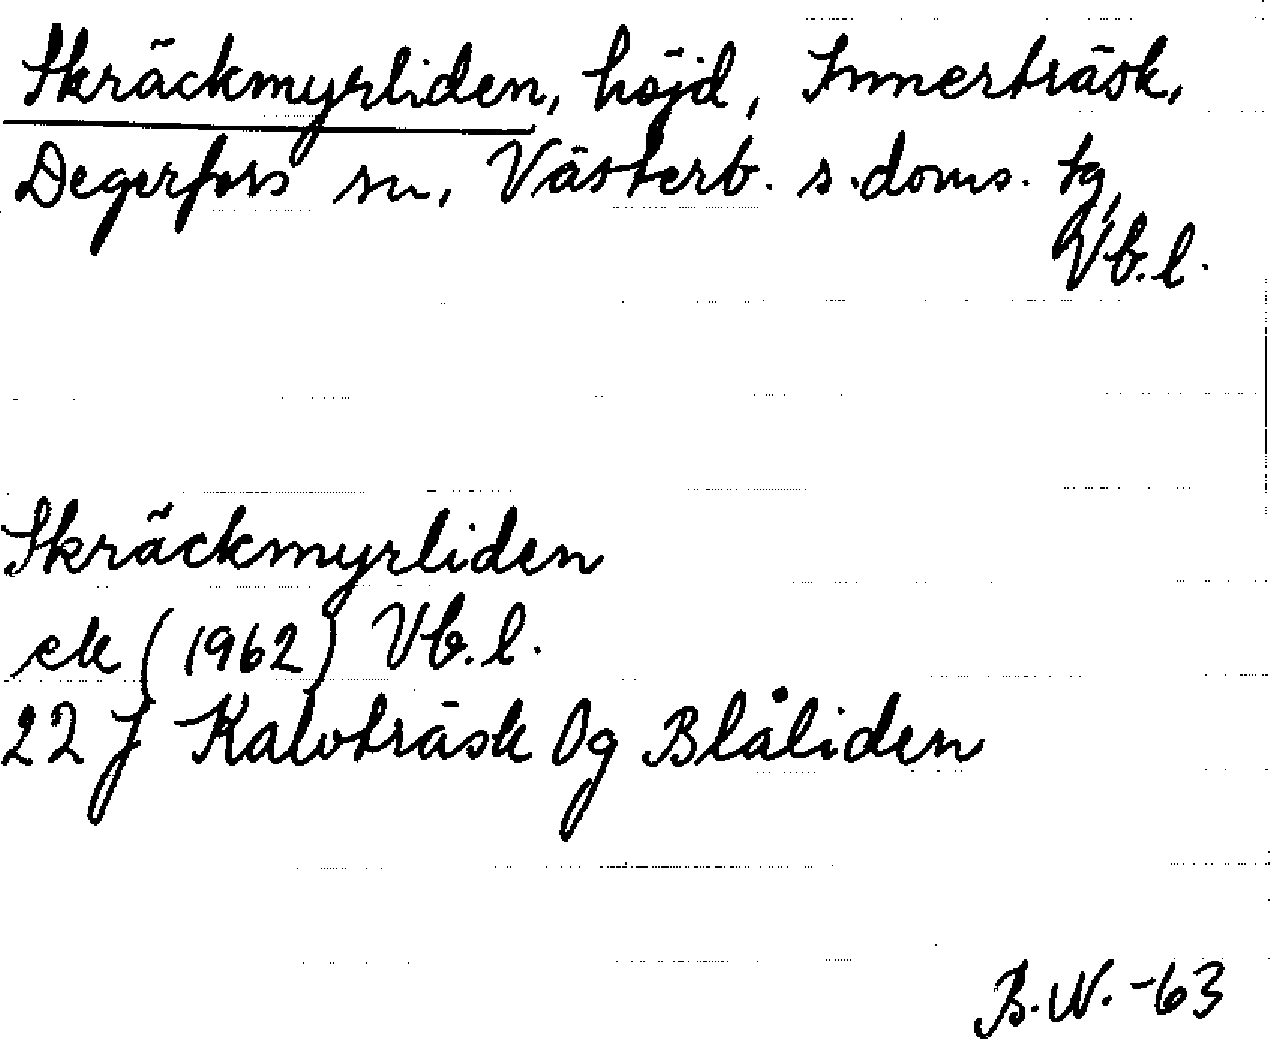 Skräckmyrliden, höjd, Innerträsk,
Degerfors sn, Västerb. s. doms. tg,
Vb. l.
Skräckmyrliden
ek (1962) Vb. l.
22 J Kalvträsk 0g Blåliden
B. W. -63